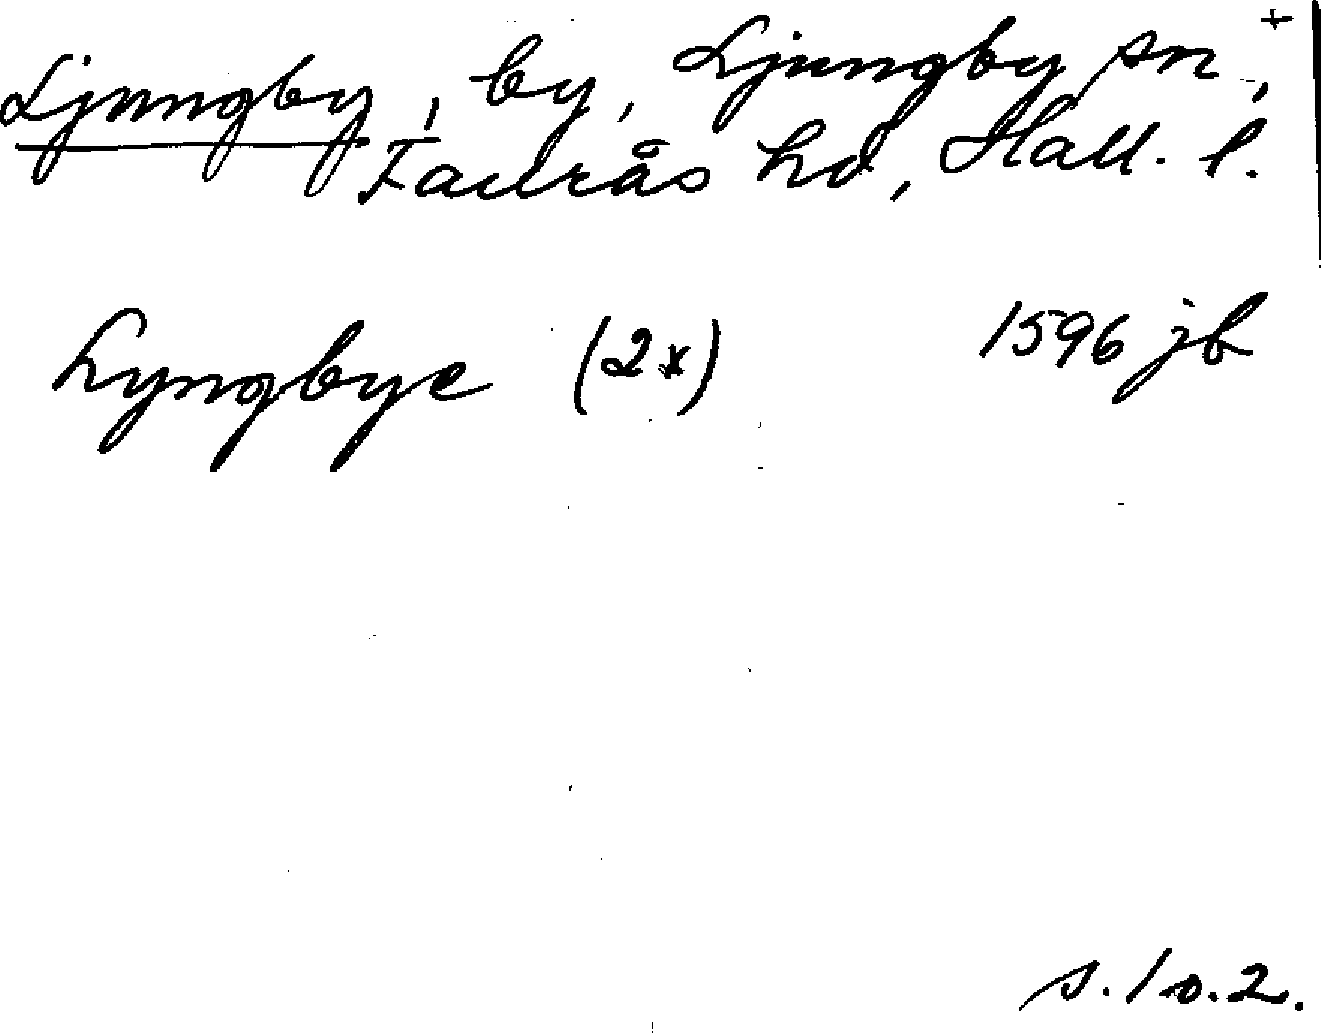 Ljungby, by, Ljungby sn, +
Faurås hd, Hall. l.
Lyngbye (2x) 1596 jb
s. 1 o. 2.